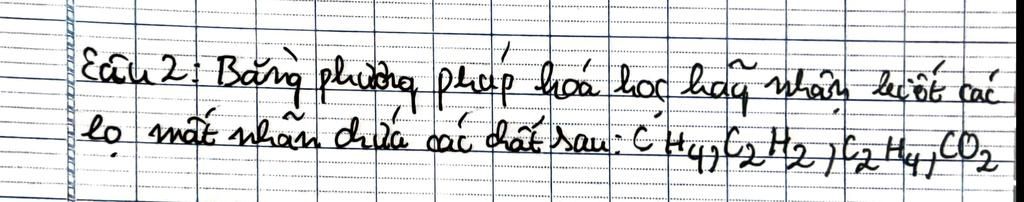 Câu 2: Bằng phương pháp hoá học hãy nhận biết các
lọ mất nhãn chứa các chất sau: CH4, C2H2, C2H4, CO2